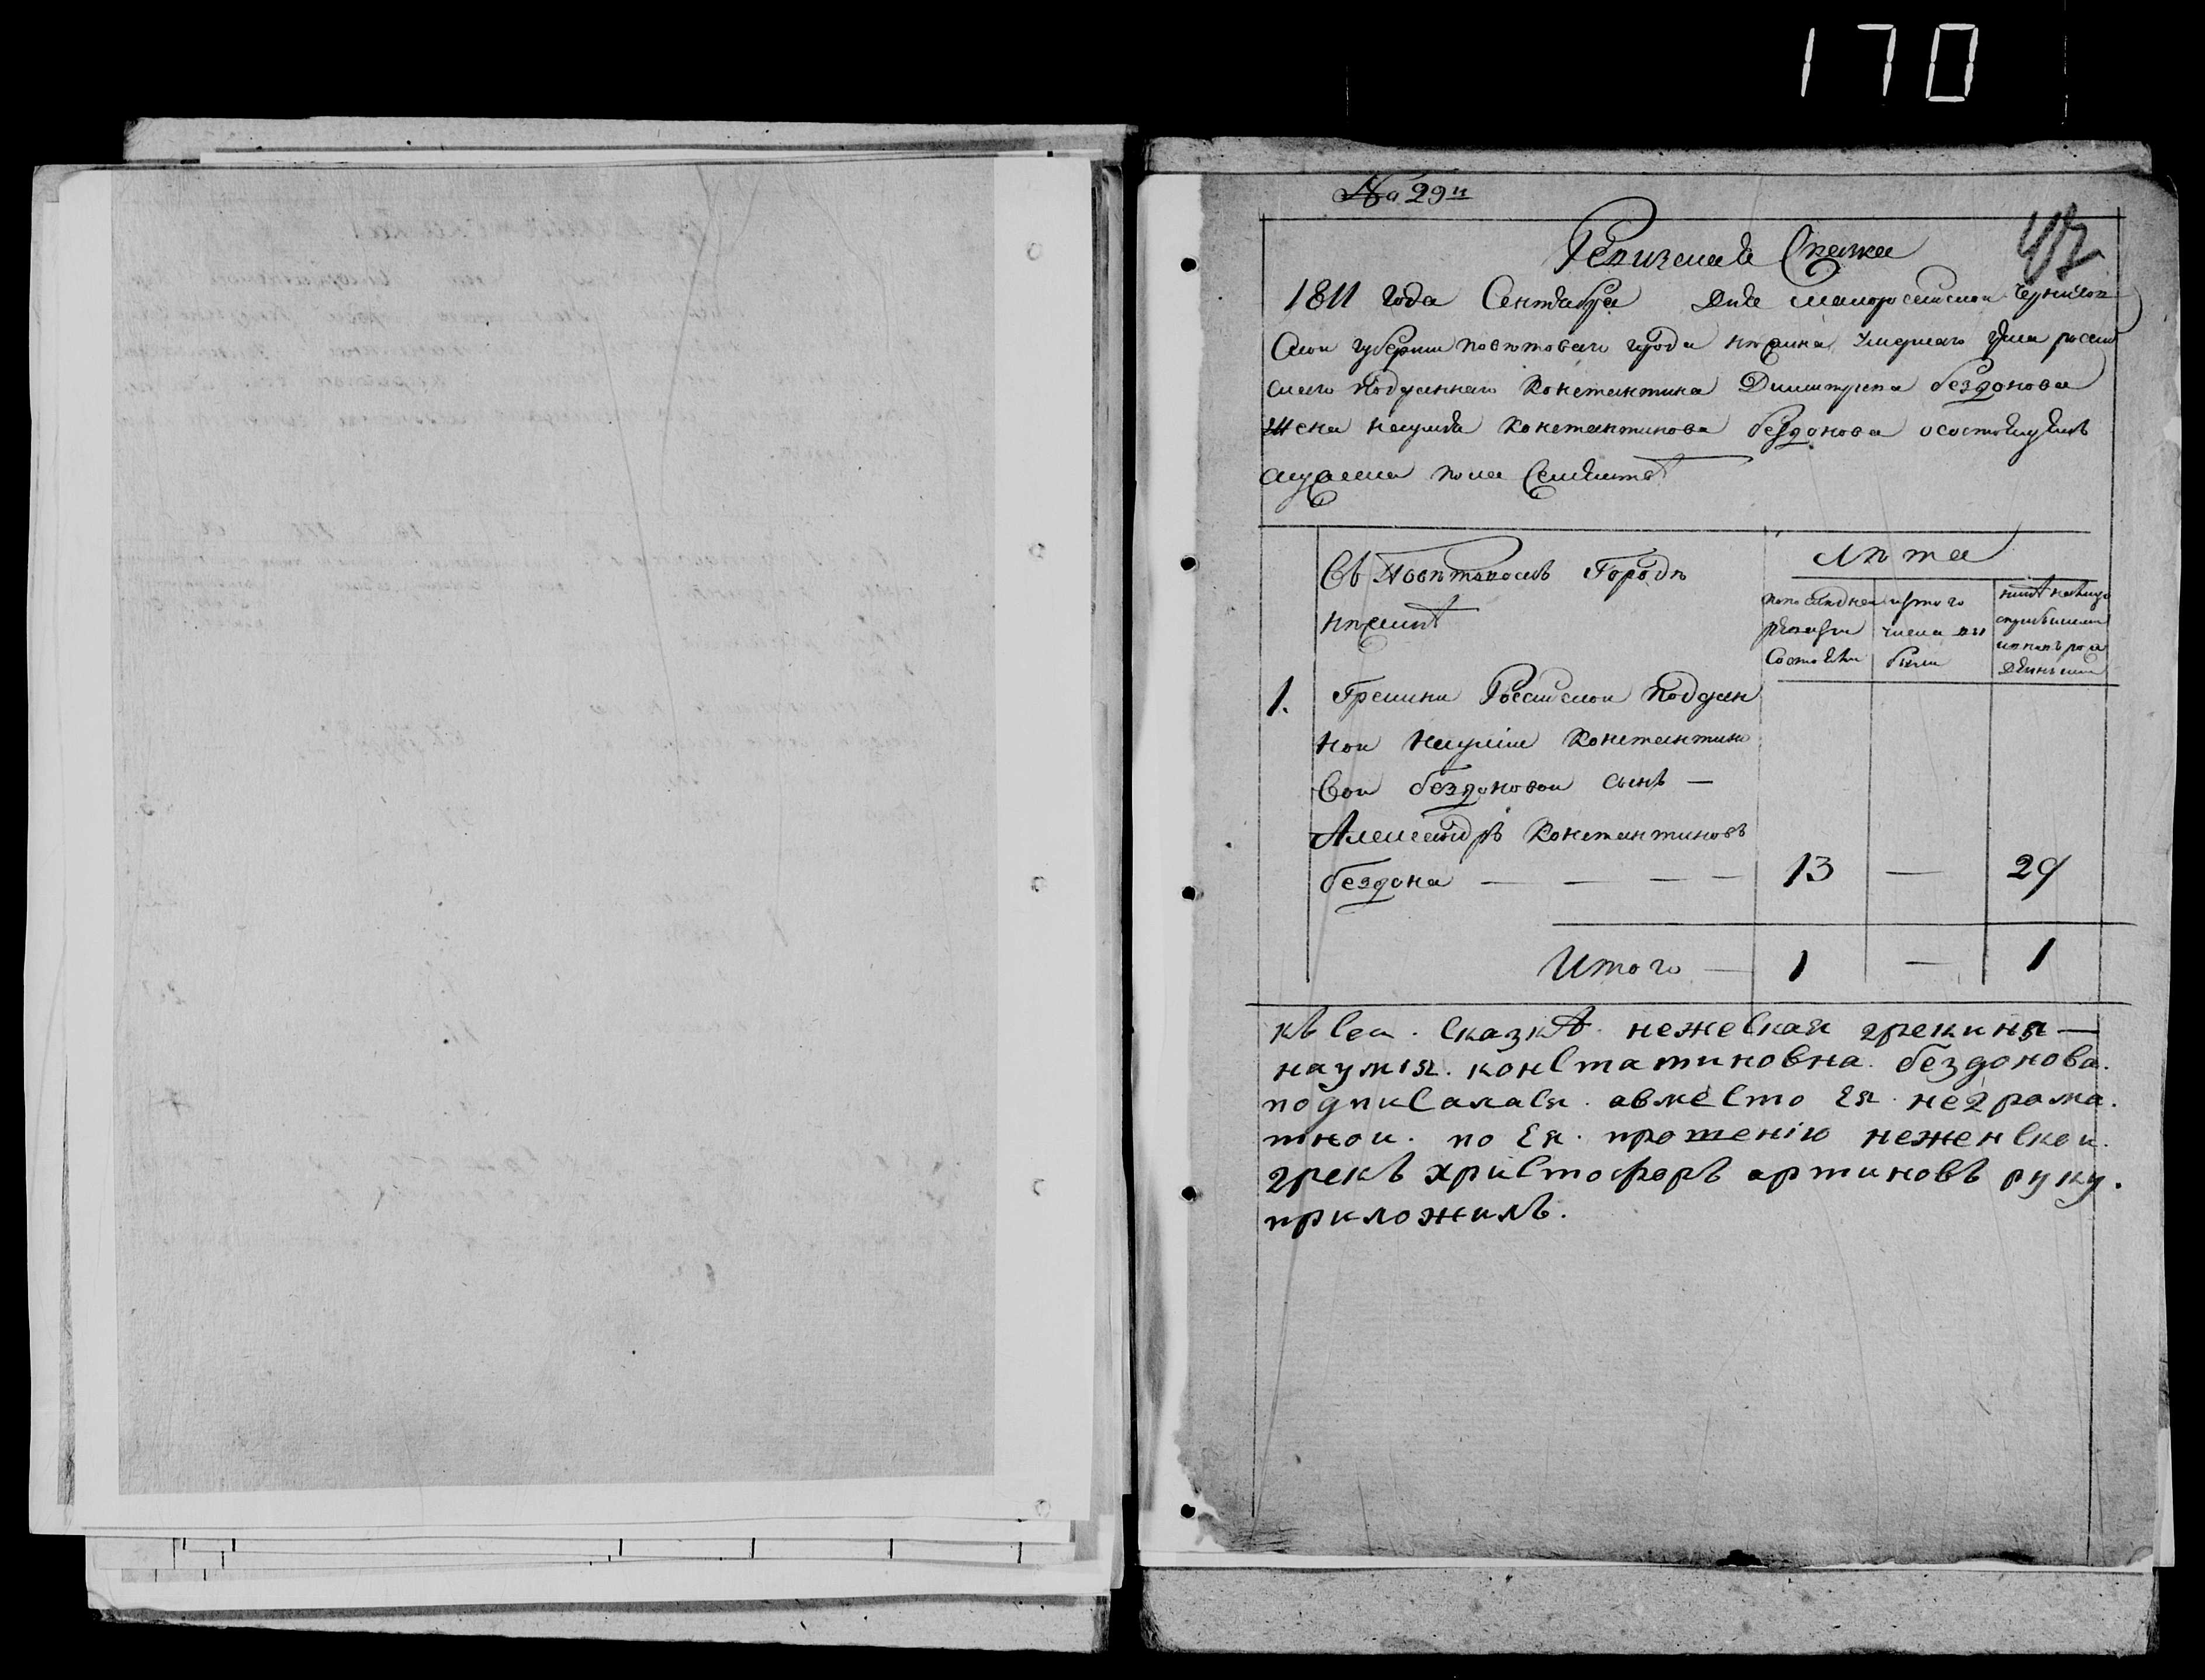 170
№ 29й
Ревизская Сказка
1811 года Сентября дня малоросийской Чернигов
ской губернии поветоваго города нѣжина умершаго грека россий
скаго подданнаго Константина Димитриева бездонова
жена наумия Константинова бездонова о состоящемъ
мужеска пола Семействѣ
Въ Поветовомъ Городѣ
нѣжинѣ
лѣта
по последней ревизии Состояли
изъ того числа выбыли
ныне налицо
1. Грекини Российской Поддан
ной Наумии Константино
вой бездоновой сынъ —
Александръ Константиновъ
бездона — — — — 13 — 29
Итого — 1 — 1
къ сеи. сказкѢ. нежеская грекиня —
наумия. констатиновна. бездонова.
подписалася. авместо Ея. неграма.
тнои. по Ея. прошению неженскои.
грекъ христофоръ артиновъ руку.
приложилъ.